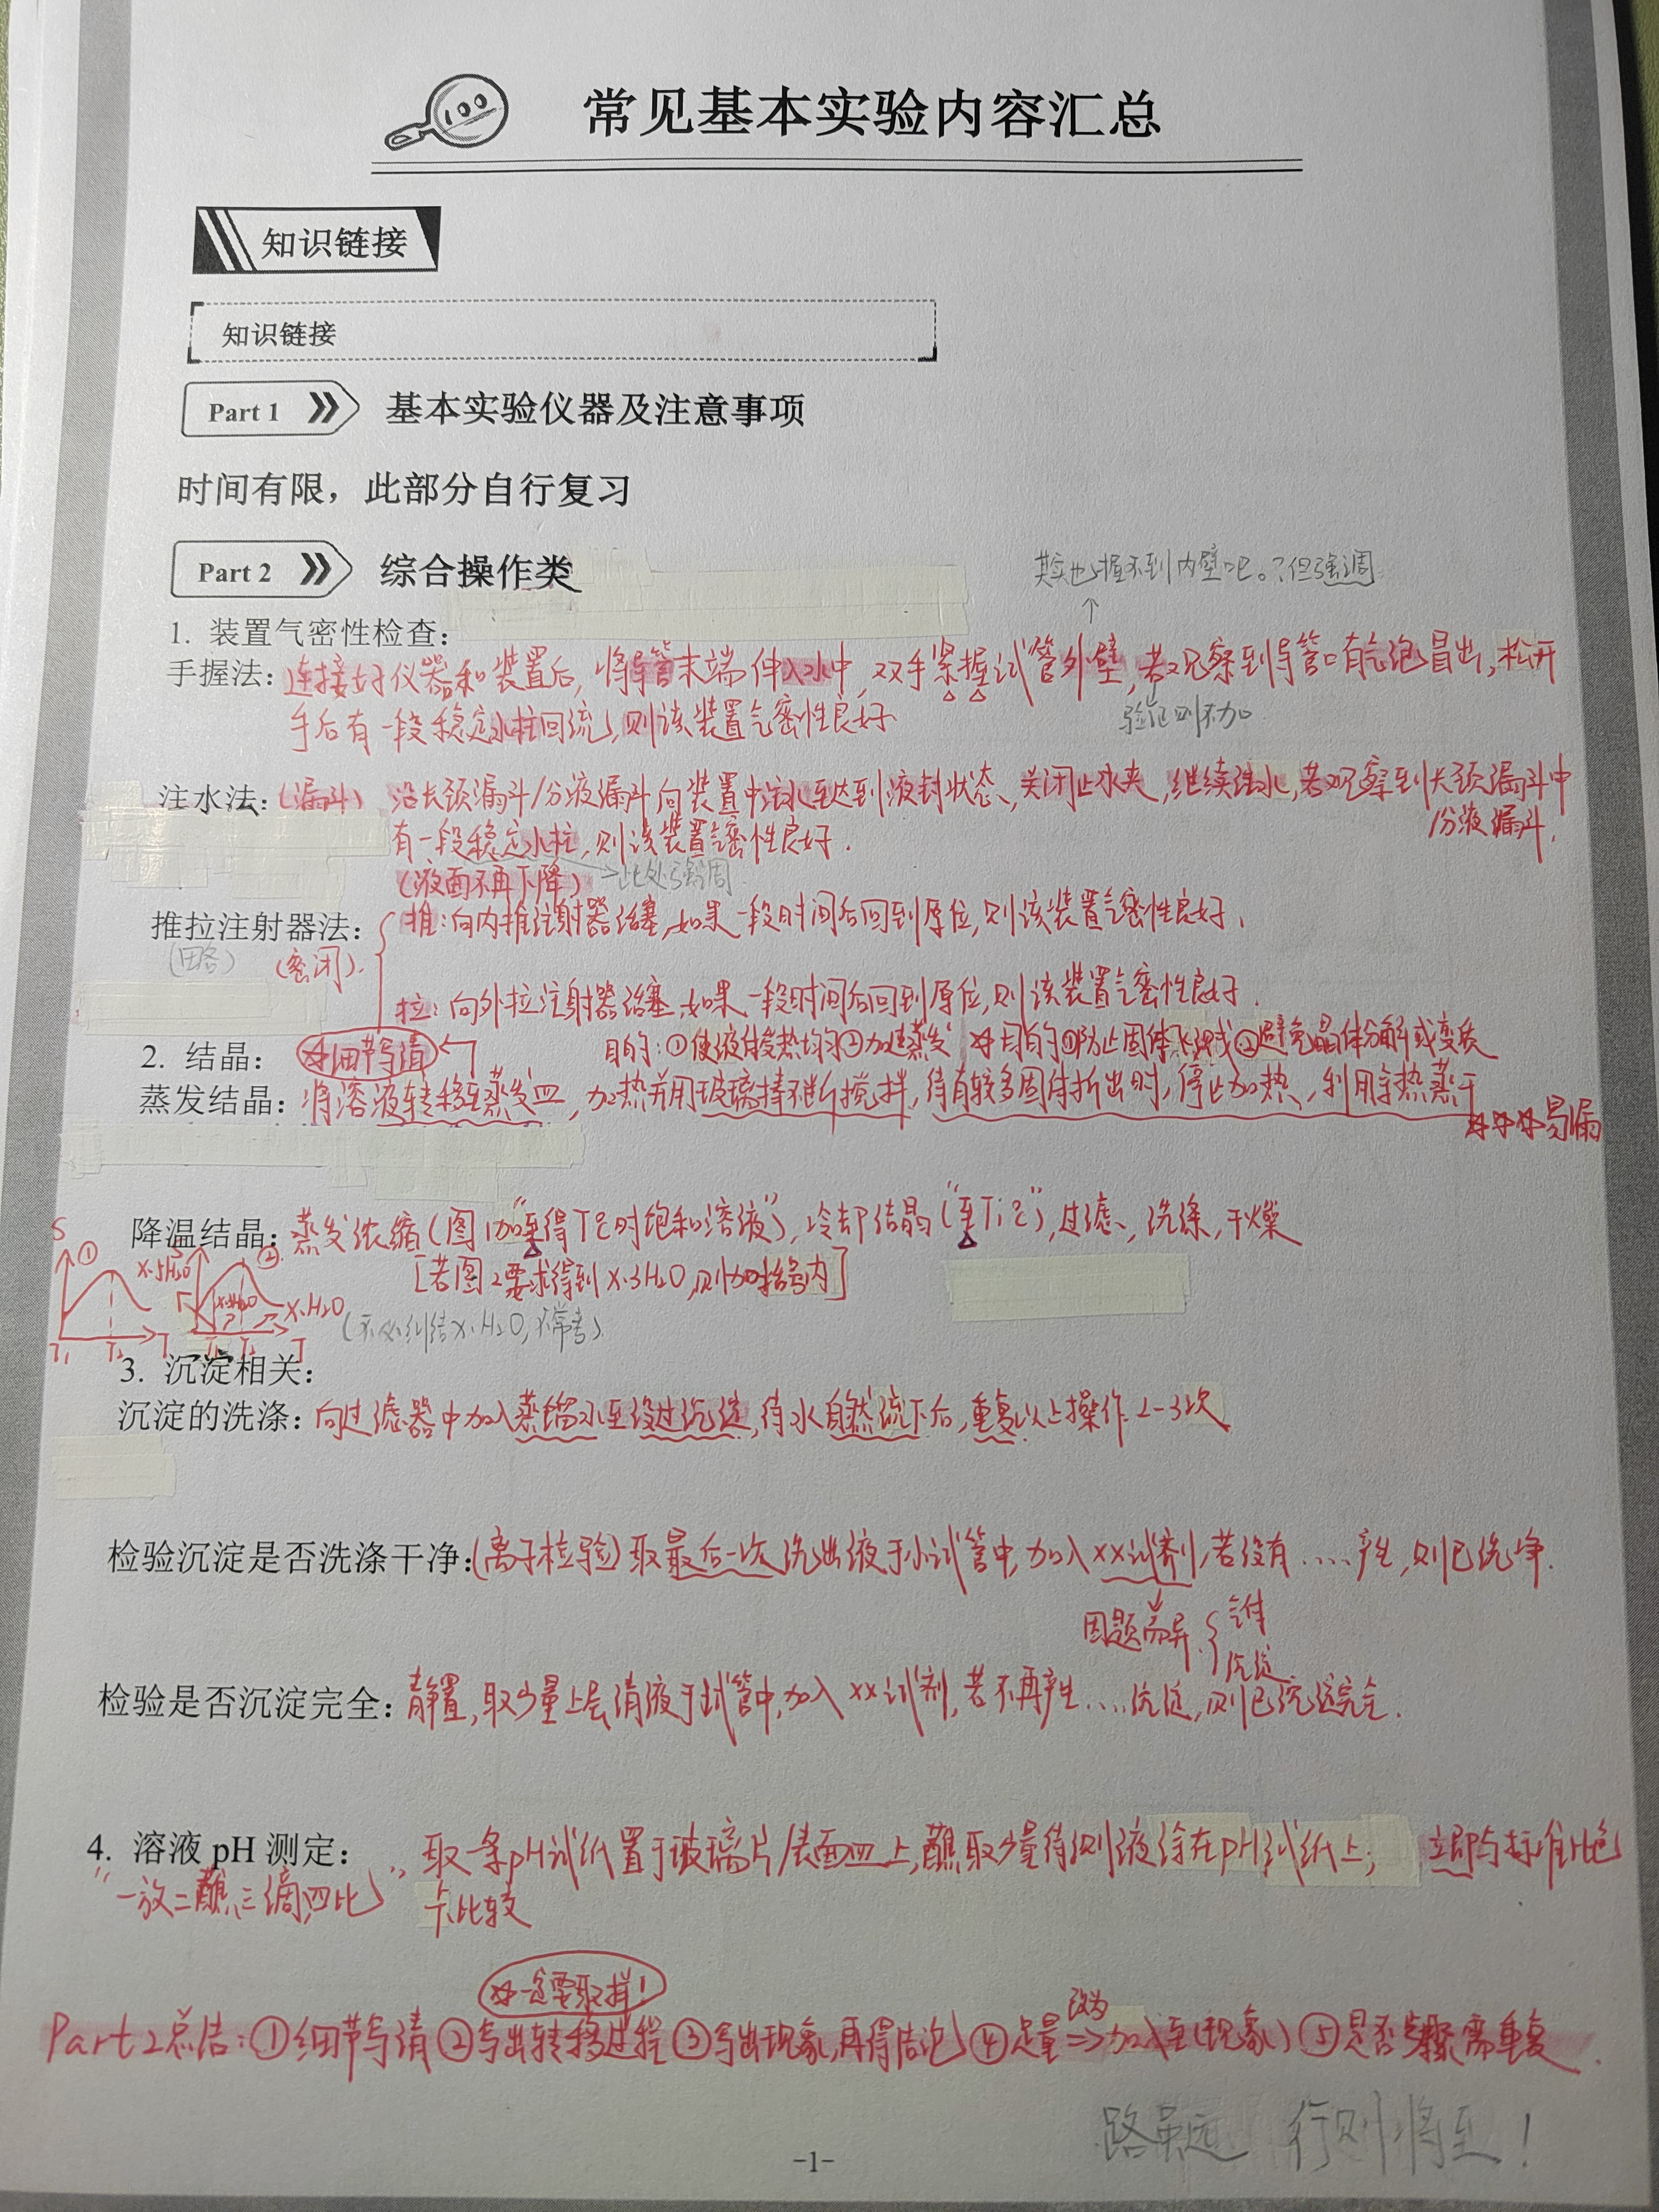 常见基本实验内容汇总
知识链接
知识链接
Part 1 基本实验仪器及注意事项
时间有限，此部分自行复习
Part 2 综合操作类
其实也握不到内壁吧。?但强调
1. 装置气密性检查：
手握法：连接好仪器和装置后，将导管末端伸入水中，双手紧握试管外壁，若观察到导管口有气泡冒出，松开
手后有一段稳定水柱回流，则该装置气密性良好
验证则不加
注水法：(漏斗) 沿长颈漏斗/分液漏斗向装置中注水至达到液封状态，关闭止水夹，继续注水，若观察到长颈漏斗中
/分液漏斗，
有一段稳定水柱，则该装置气密性良好．
(液面不再下降) →此处强调
推拉注射器法： 推：向内推注射器活塞，如果一段时间后回到原位，则该装置气密性良好．
(略) (密闭)．
拉：向外拉注射器活塞，如果一段时间后回到原位，则该装置气密性良好．
2. 结晶： 细节写清 目的：①使液体受热均匀②加速蒸发 目的①防止固体飞溅②避免晶体分解或变质
蒸发结晶：将溶液转移至蒸发皿，加热并用玻璃棒不断搅拌，待有较多固体析出时，停止加热，利用余热蒸干
☆☆☆易漏
降温结晶：蒸发浓缩(图1加“至得T2时饱和溶液”)，冷却结晶(“至T1℃”)，过滤、洗涤，干燥
[若图2要求得到X·3H2O，则加括号内]
S ① X·5H2O ② X·3H2O X·H2O
(不必纠结X·H2O，不常考)
T1 T2 T T1 T2 T
3. 沉淀相关：
沉淀的洗涤：向过滤器中加入蒸馏水至没过沉淀，待水自然流下后，重复以上操作2-3次
检验沉淀是否洗涤干净：(离子检验)取最后一次洗出液于小试管中，加入XX试剂，若没有....产生，则已洗净．
因题而异．{气体
沉淀
检验是否沉淀完全：静置，取少量上层清液于试管中，加入XX试剂，若不再产生....沉淀，则已沉淀完全．
4. 溶液 pH 测定： 取一条pH试纸置于玻璃片/表面皿上，蘸取少量待测液涂在pH试纸上； 立即与标准比色
“一放二蘸三滴四比” 卡比较
☆一定要取样！
Part2总结：①细节写清②写出转移过程③写出现象，再得结论④足量 改为→ 加入至(现象)⑤是否步骤需重复．
路虽远 行则将至！
-1-